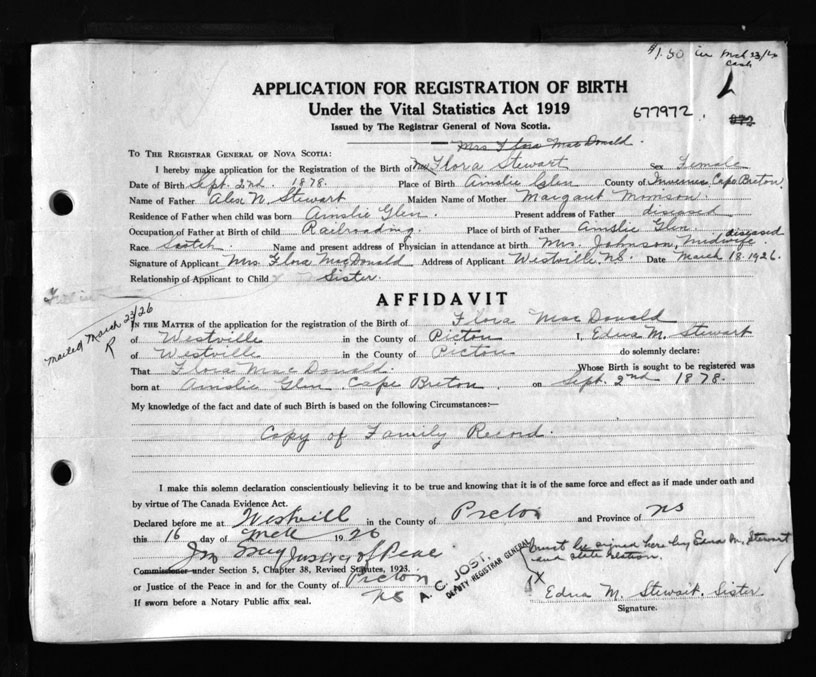 $1.50 in Mch 23/26
cash
APPLICATION FOR REGISTRATION OF BIRTH
Under the Vital Statistics Act 1919
677972.
Issued by The Registrar General of Nova Scotia.
Mrs Flora MacDonald.
TO THE REGISTRAR GENERAL OF NOVA SCOTIA:
I hereby make application for the Registration of the Birth of Flora Stewart Sex Female
Date of Birth Sept. 2nd. 1878. Place of Birth Ainslie Glen County of Cape Breton
Name of Father Alex N. Stewart Maiden Name of Mother Margaret
Residence of Father when child was born Ainslie Glen. Present address of Father diseased
Occupation of Father at Birth of child Railroading. Place of birth of Father Ainslie Glen. diseased
Race Scotch. Name and present address of Physician in attendance at birth Mrs. Johnson, Midwife.
Signature of Applicant Mrs. Flora MacDonald Address of Applicant Westville, N.S. Date March 18. 1926.
Relationship of Applicant to Child Sister.
mailed March 23/26
R
AFFIDAVIT
IN THE MATTER of the application for the registration of the Birth of Flora MacDonald
of Westville in the County of Picton I, Edna M. Stewart
of Westville in the County of Picton do solemnly declare:
That Flora MacDonald. Whose Birth is sought to be registered was
born at Ainslie Glen Cape Breton. on Sept. 2nd 1878.
My knowledge of the fact and date of such Birth is based on the following Circumstances:—
Copy of Family Record.
I make this solemn declaration conscientiously believing it to be true and knowing that it is of the same force and effect as if made under oath and
by virtue of The Canada Evidence Act.
Declared before me at Westvill in the County of Picton and Province of NS
this 16 day of Mch 1926
Justice of Peace
Commissioner under Section 5, Chapter 38, Revised Statutes, 1923.
or Justice of the Peace in and for the County of Picton
NS
If sworn before a Notary Public affix seal.
A. C. JOST.
DEPUTY REGISTRAR GENERAL
must be signed here by Edna M. Stewart
and state relation.
X
Edna M. Stewart. Sister
Signature.